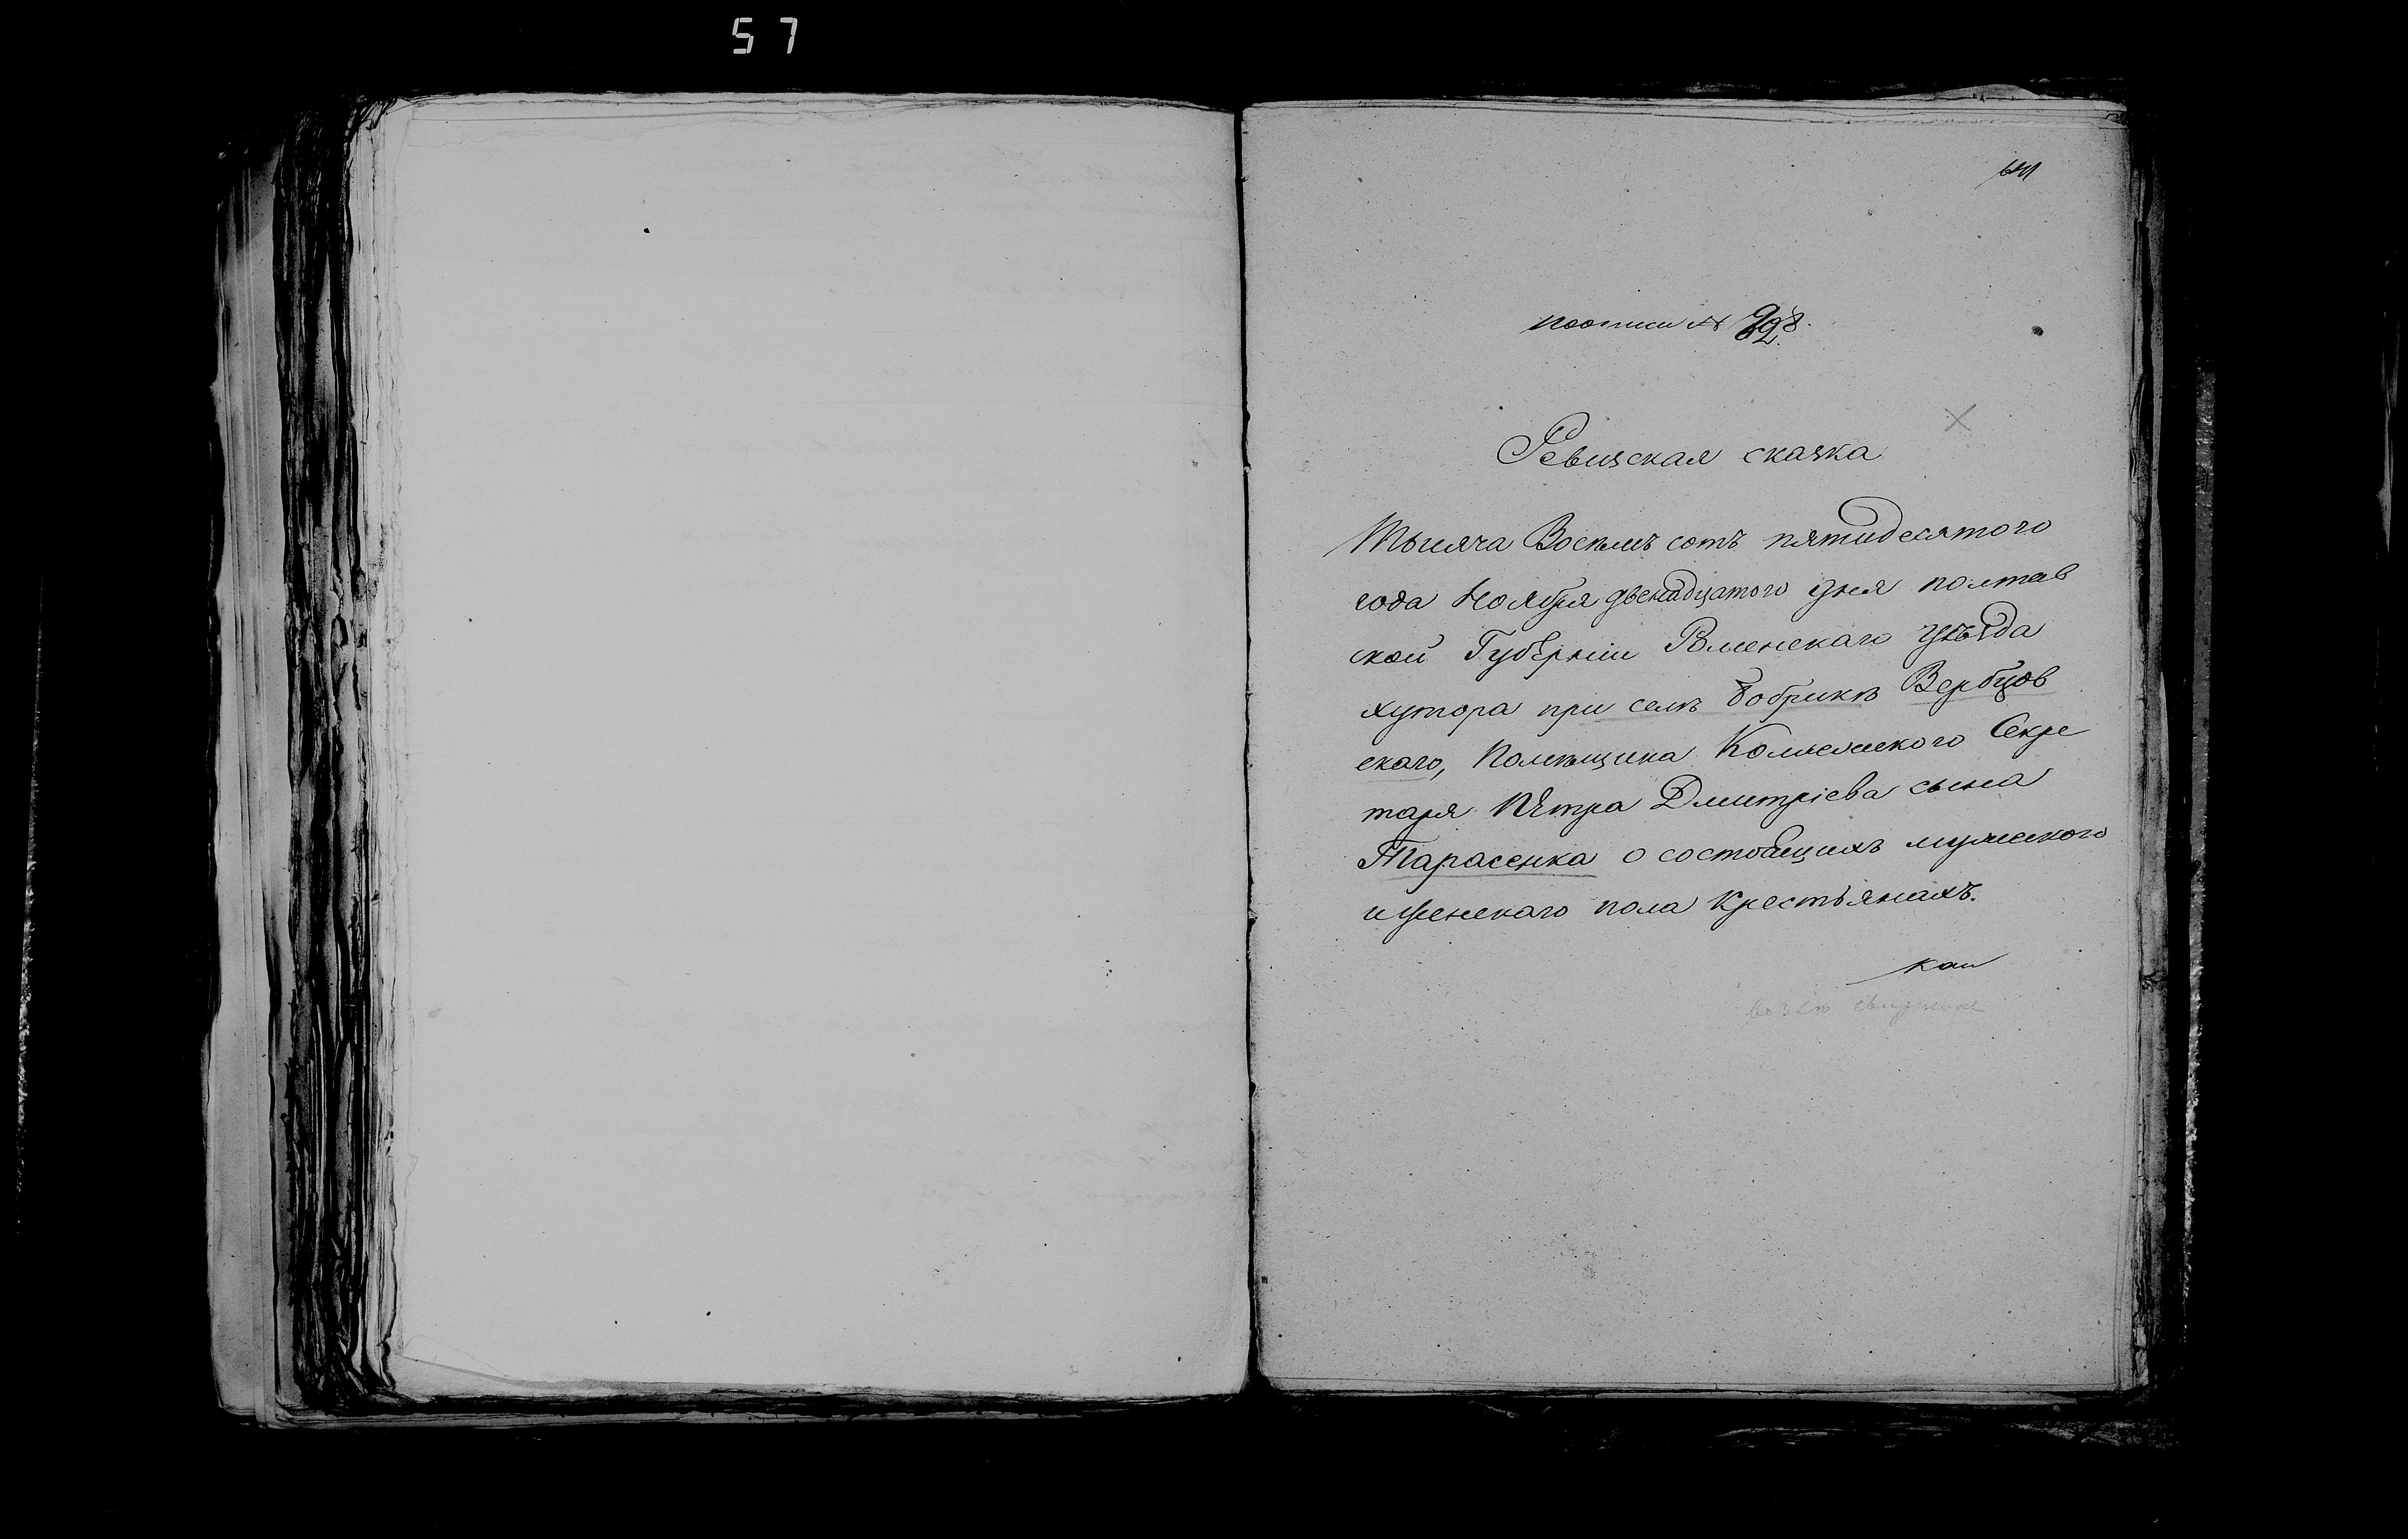 57
641
поописи № 298.
Ревизская сказка
Тысяча Восемь сотъ пятидесятого
года Ноября двенадцатого дня полтав
ской Губерніи Роменскаго уѣзда
хутора при селѣ Бобрикѣ Вербцов
скаго, Помѣщика Колежского Секре
таря Петра Дмитріева сына
Тарасенка о состоящихъ мужеского
и женскаго пола крестьянахъ.